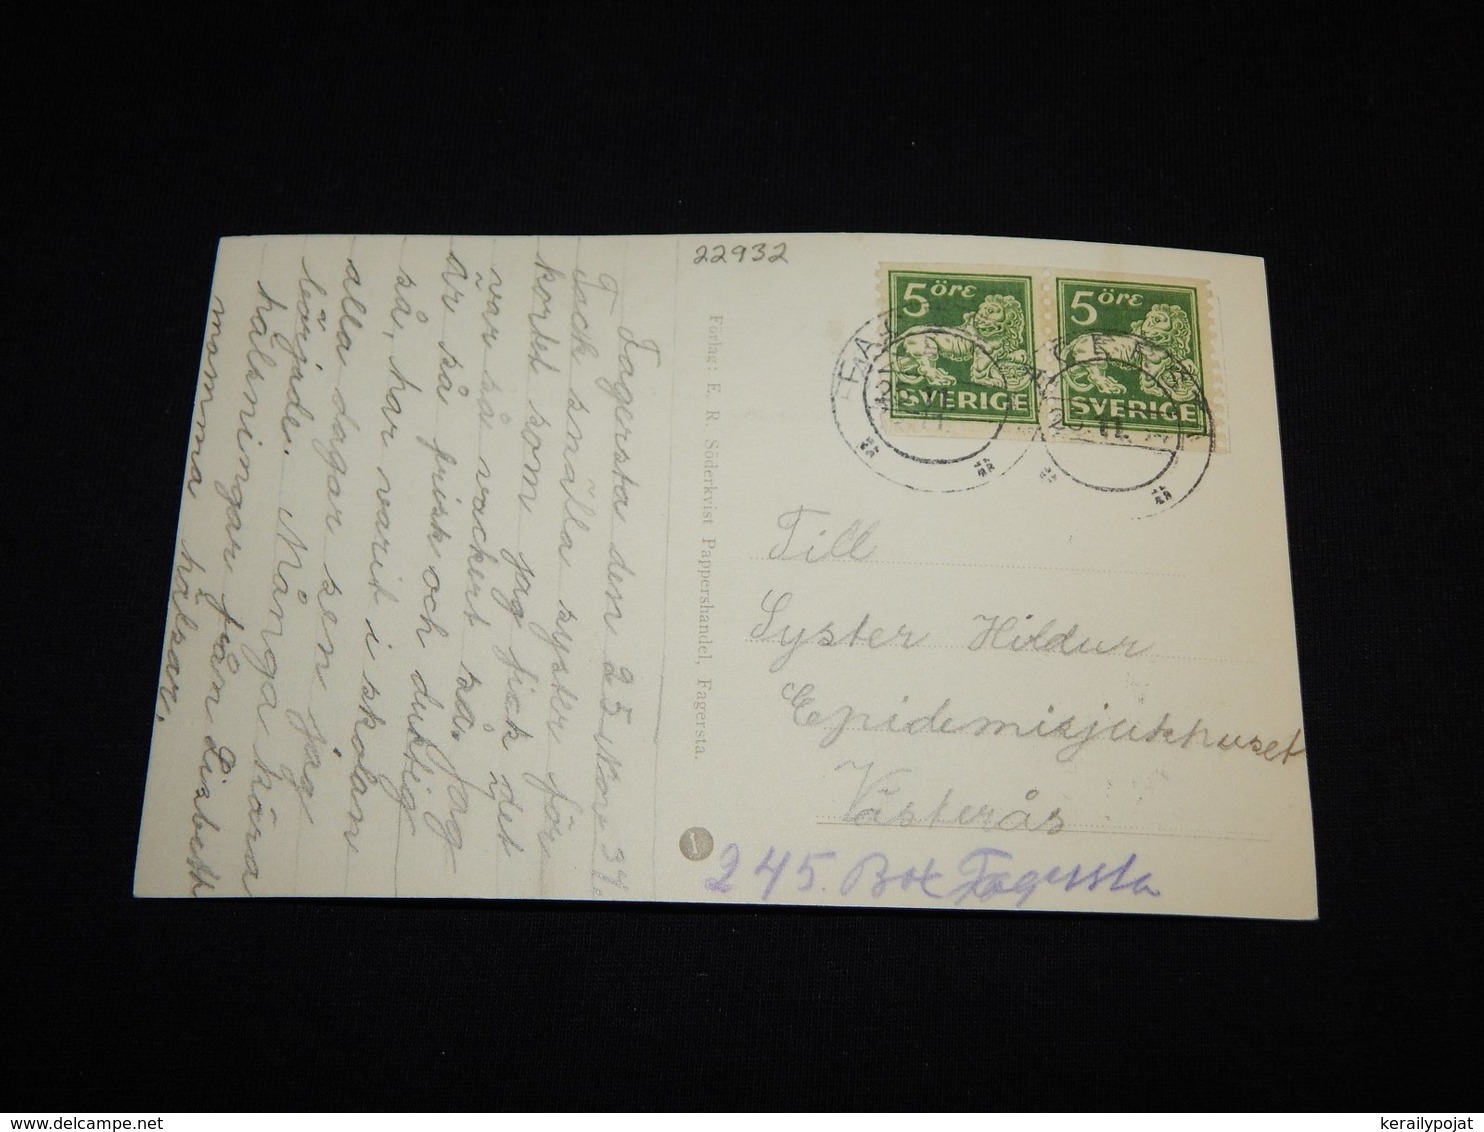 22932
5 öre
SVERIGE
5 öre
SVERIGE
Fagersta den 25 Nov 37.
Tack snälla syster för
kortet som jag fick det
var så vackert så. Jag
är så frisk och duktig
så, har varit i skolan
alla dagar sen jag
började. Många kära
hälsningar från Lisbeth
mamma hälsar.
Förlag: E. R. Söderkvist Pappershandel, Fagersta.
Till
Syster Hildur
Epidemisjukhuset
Västerås
245. Box Fagersta
kerailypojat